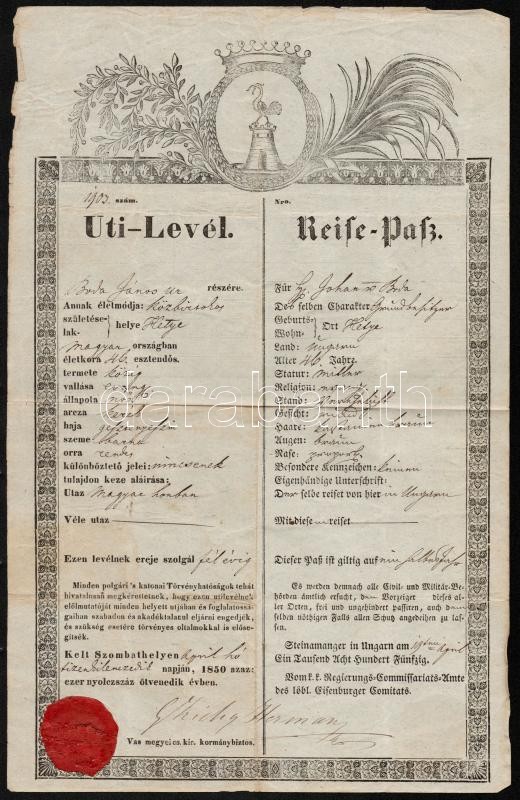 1903. szám.
Uti-Levél.
Boda János úr részére.
Annak életmódja: közbirtokos
születése-
lak- helye Hetye
Magyar országban
életkora 46 esztendős.
termete közép
vallása evang
állapola nős
arcza kerek
haja
szeme barna
orra rendes
különböztető jelei: nincsenek
tulajdon keze aláirása:
Utaz Magyar honban
Véle utaz
Ezen levélnek ereje szolgál fél évig
Minden polgári 's katonai Törvényhatóságok tehát
hivatalosan megkérettetnek, hogy ezen utilevélnek
előlmutatóját minden helyett utjában és foglalatossá-
gaiban szabadon és akadéktalanul eljárni engedjék,
és szükség esetére törvényes oltalmokkal is előse-
gítsék.
Kelt Szombathelyen April hó
tizenkilenczedik napján, 1850 azaz:
ezer nyolczszáz ötvenedik évben.
Vas megyei cs. kir. kormánybiztos.
Nro.
Reise-Paß.
Für H. Johan v Boda
Desselben Charakter Grundbesitzer
Geburts-
Wohn- Ort Hetye
Land: Ungarn
Alter 46 Jahre.
Statur: mittler
Religion: evang
Stand:
Gesicht: rund
Haare:
Augen: braun
Nase: proport
Besondere Kennzeichen: keine
Eigenhändige Unterschrift:
Derselbe reiset von hier in Ungarn
Mit diesem reiset
Dieser Paß ist giltig auf ein halbes Jahr
Es werden demnach alle Civil- und Militär-Be-
hörden ämtlich ersucht, dem Vorzeiger dieses al-
ler Orten, frei und ungehindert passiren, auch dem-
selben nöthigen Falls allen Schutz angedeihen zu las-
sen.
Steinamanger in Ungarn am 19ten April
Ein Tausend Acht Hundert Fünfzig.
Vom k. k. Regierungs-Commissariats-Amte
des löbl. Eisenburger Comitats.
Zichy Herman
darabanth